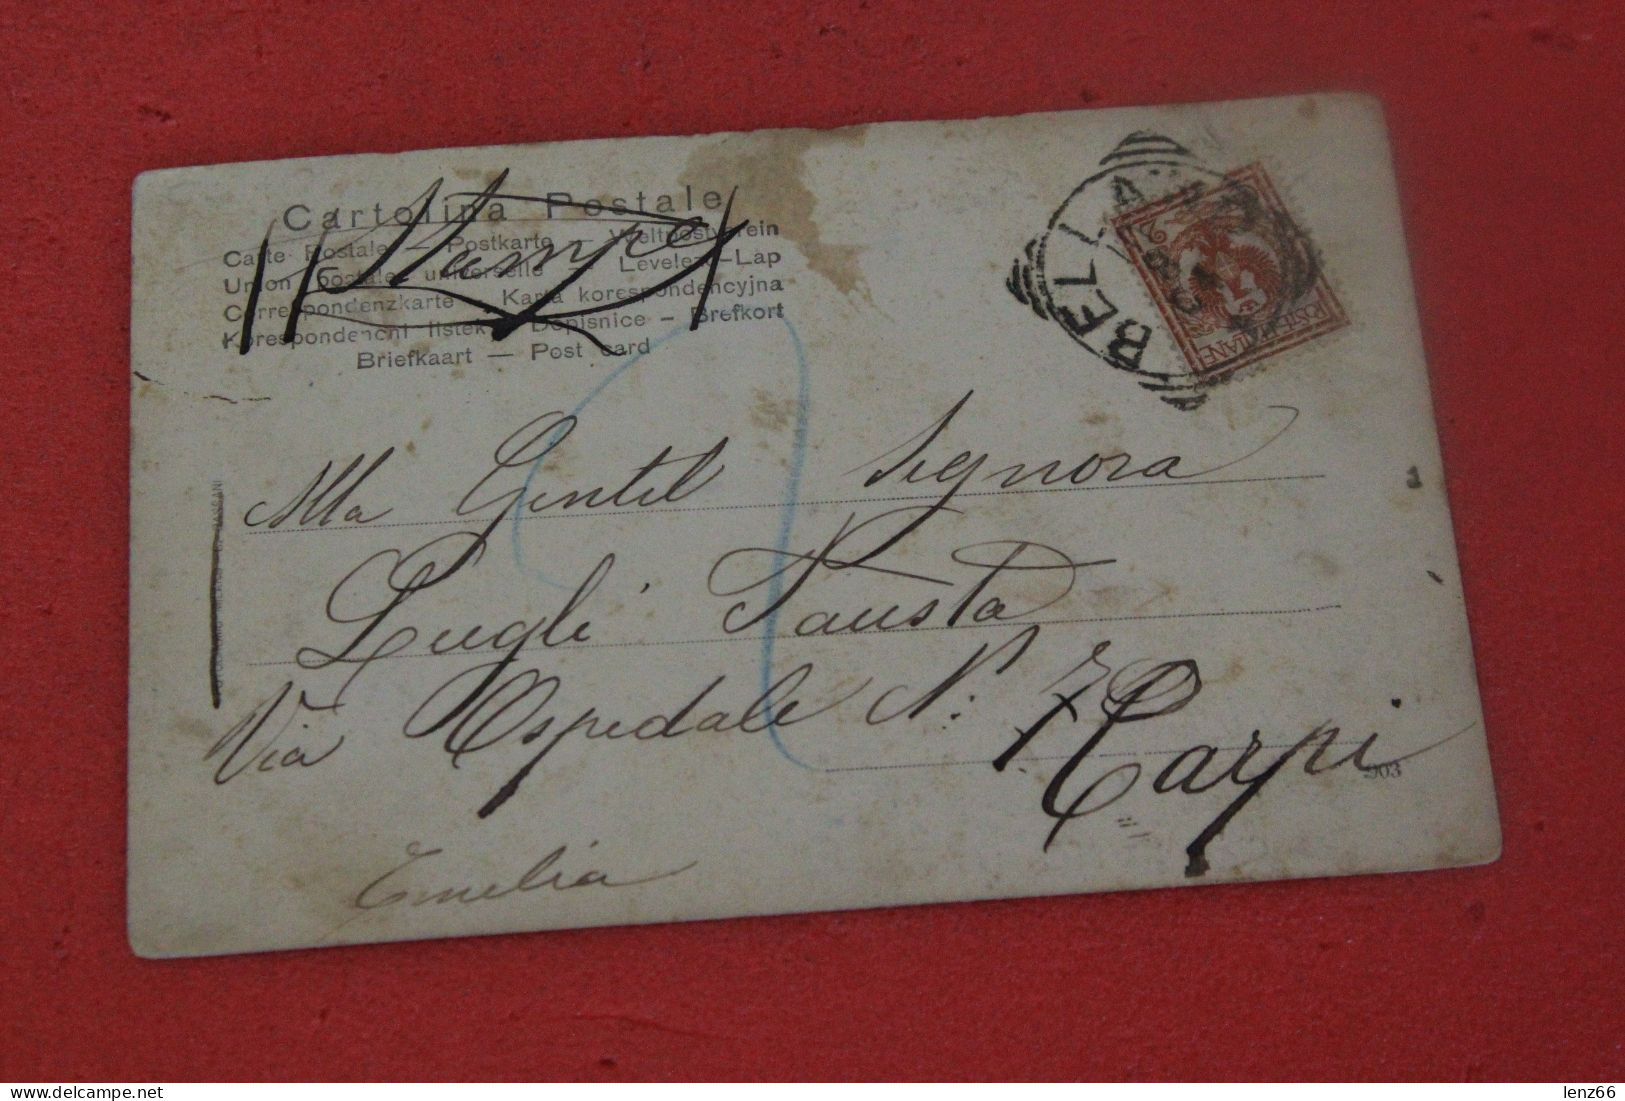 Cartolina Postale
Carte Postale – Postkarte – Weltpostverein
Union postale universelle – Levelező-Lap
Correspondenzkarte – Karta korespondencyjna
Korespondenční lístek – Dopisnice – Brefkort
Briefkaart — Post card
Stampe
BELLA
POSTE ITALIANE
Alla Gentil Signora
Lugli Fausta
Via Ospedale N. 7
Carpi
Emilia
903
lenz66